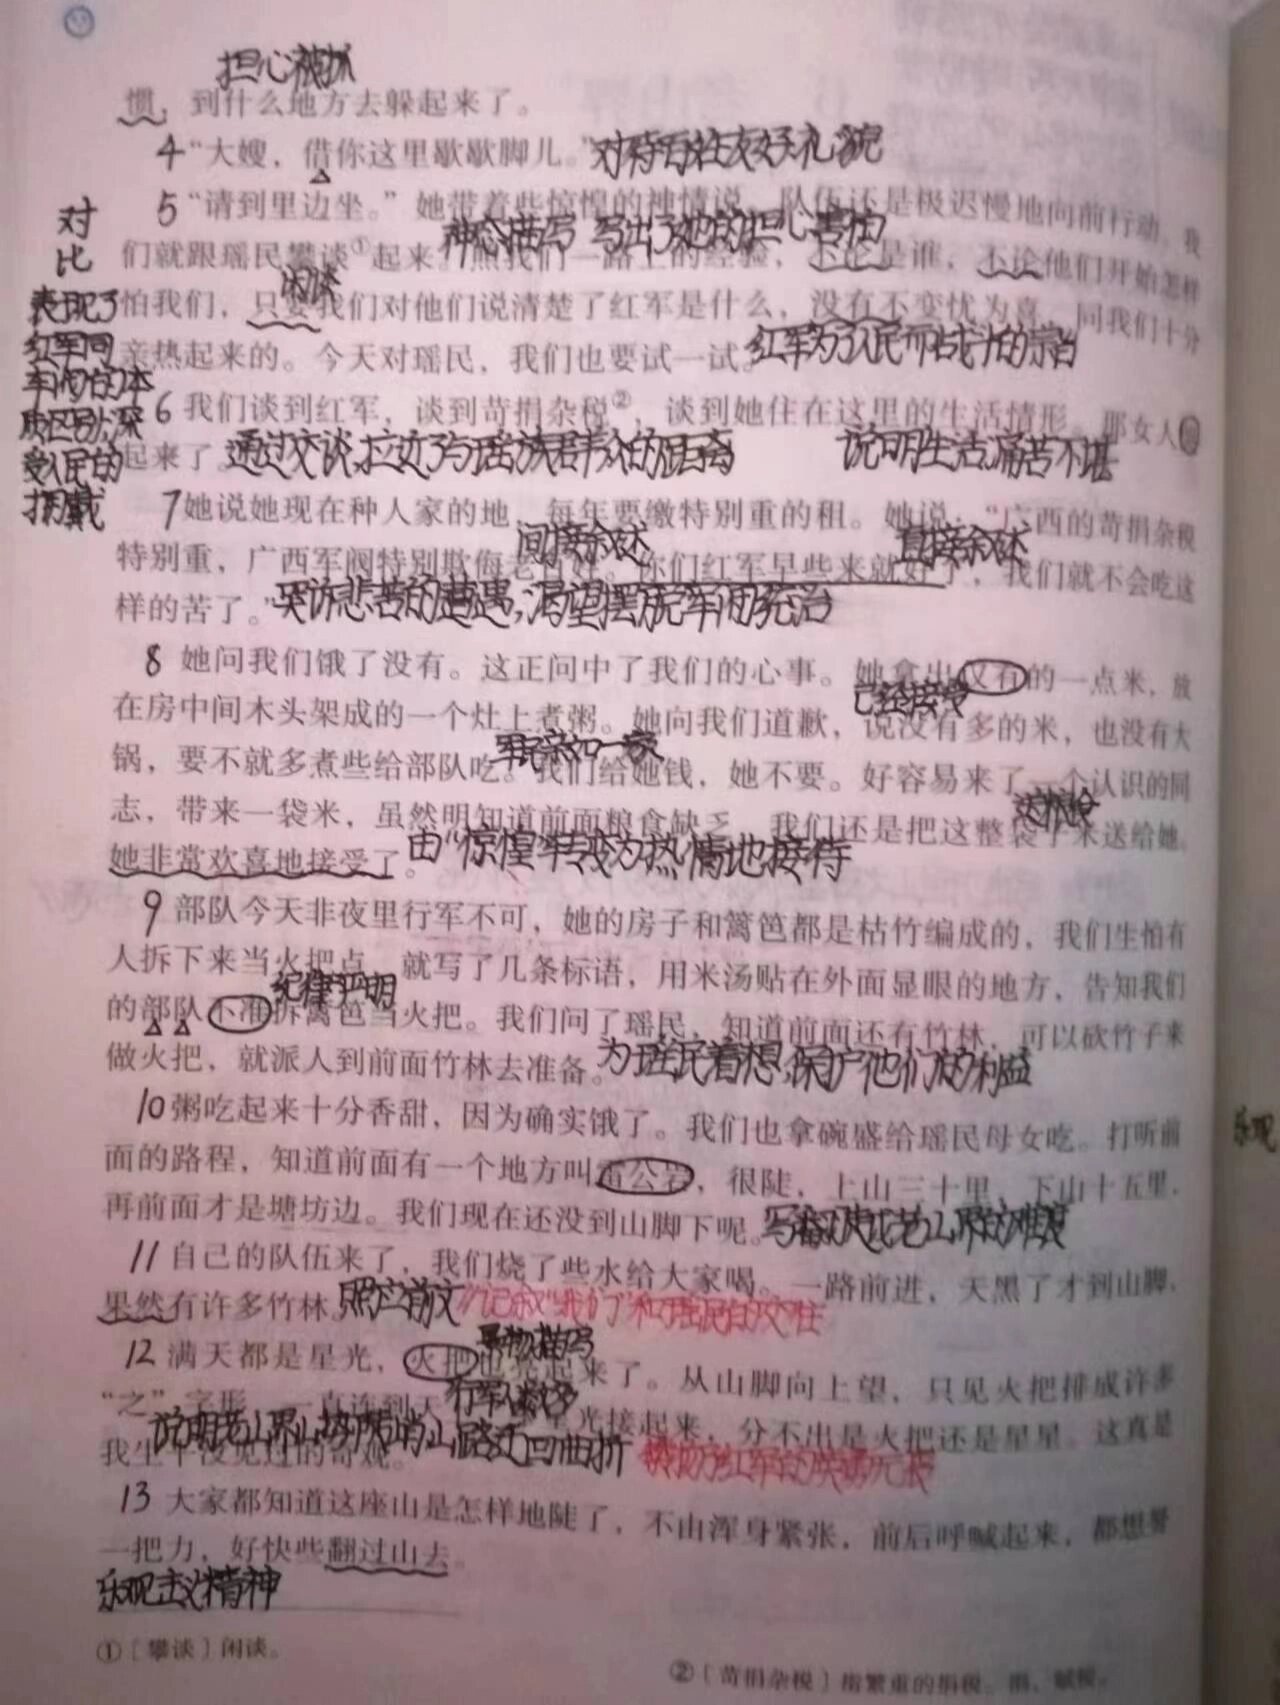 担心被抓
惯，到什么地方去躲起来了。
4“大嫂，借你这里歇歇脚儿。”对待百姓友好礼貌
5“请到里边坐。”她带着些惊惶的神情说。队伍还是极迟慢地向前行动。我
神态描写 写出了她的担心害怕
们就跟瑶民攀谈①起来。照我们一路上的经验，不论是谁，不论他们开始怎样
闲谈
怕我们，只要我们对他们说清楚了红军是什么，没有不变忧为喜，同我们十分
亲热起来的。今天对瑶民，我们也要试一试。红军为了人民而战斗的宗旨
对比
表现了
红军同
军阀的本
质区别，深
受人民的
拥戴
6 我们谈到红军，谈到苛捐杂税②，谈到她住在这里的生活情形。那女人
起来了。通过交谈，拉近了与瑶族群众的距离 说明生活痛苦不堪
7她说她现在种人家的地，每年要缴特别重的租。她说：“广西的苛捐杂税
间接叙述 直接叙述
特别重，广西军阀特别欺侮老百姓。你们红军早些来就好了，我们就不会吃这
样的苦了。”哭诉悲苦的遭遇，渴望摆脱军阀统治
8 她问我们饿了没有。这正问中了我们的心事。她拿出仅有的一点米，放
已经接受
在房中间木头架成的一个灶上煮粥。她向我们道歉，说没有多的米，也没有大
军民亲如一家
锅，要不就多煮些给部队吃。我们给她钱，她不要。好容易来了一个认识的同
志，带来一袋米，虽然明知道前面粮食缺乏，我们还是把这整袋子米送给她。
她非常欢喜地接受了。由“惊惶”转变为热情地接待
9 部队今天非夜里行军不可，她的房子和篱笆都是枯竹编成的，我们生怕有
人拆下来当火把点，就写了几条标语，用米汤贴在外面显眼的地方，告知我们
纪律严明
的部队不准拆篱笆当火把。我们问了瑶民，知道前面还有竹林，可以砍竹子来
做火把，就派人到前面竹林去准备。为瑶民着想，保护他们的利益
10粥吃起来十分香甜，因为确实饿了。我们也拿碗盛给瑶民母女吃。打听前
面的路程，知道前面有一个地方叫雷公岩，很陡，上山三十里，下山十五里，
再前面才是塘坊边。我们现在还没到山脚下呢。写翻越老山界的难度
乐观
11 自己的队伍来了，我们烧了些水给大家喝。一路前进，天黑了才到山脚，
果然有许多竹林。照应前文//记叙“我们”和瑶民的交往
景物描写
12 满天都是星光，火把也亮起来了。从山脚向上望，只见火把排成许多
行军人数多
“之”字形，一直连到天上，跟星光接起来，分不出是火把还是星星。这真是
说明老山界山势陡峭山路迂回曲折
我生平没见过的奇观。
13 大家都知道这座山是怎样地陡了，不由浑身紧张，前后呼喊起来，都想努
一把力，好快些翻过山去。
乐观主义精神
①〔攀谈〕闲谈。
②〔苛捐杂税〕指繁重的捐税。捐，赋税。